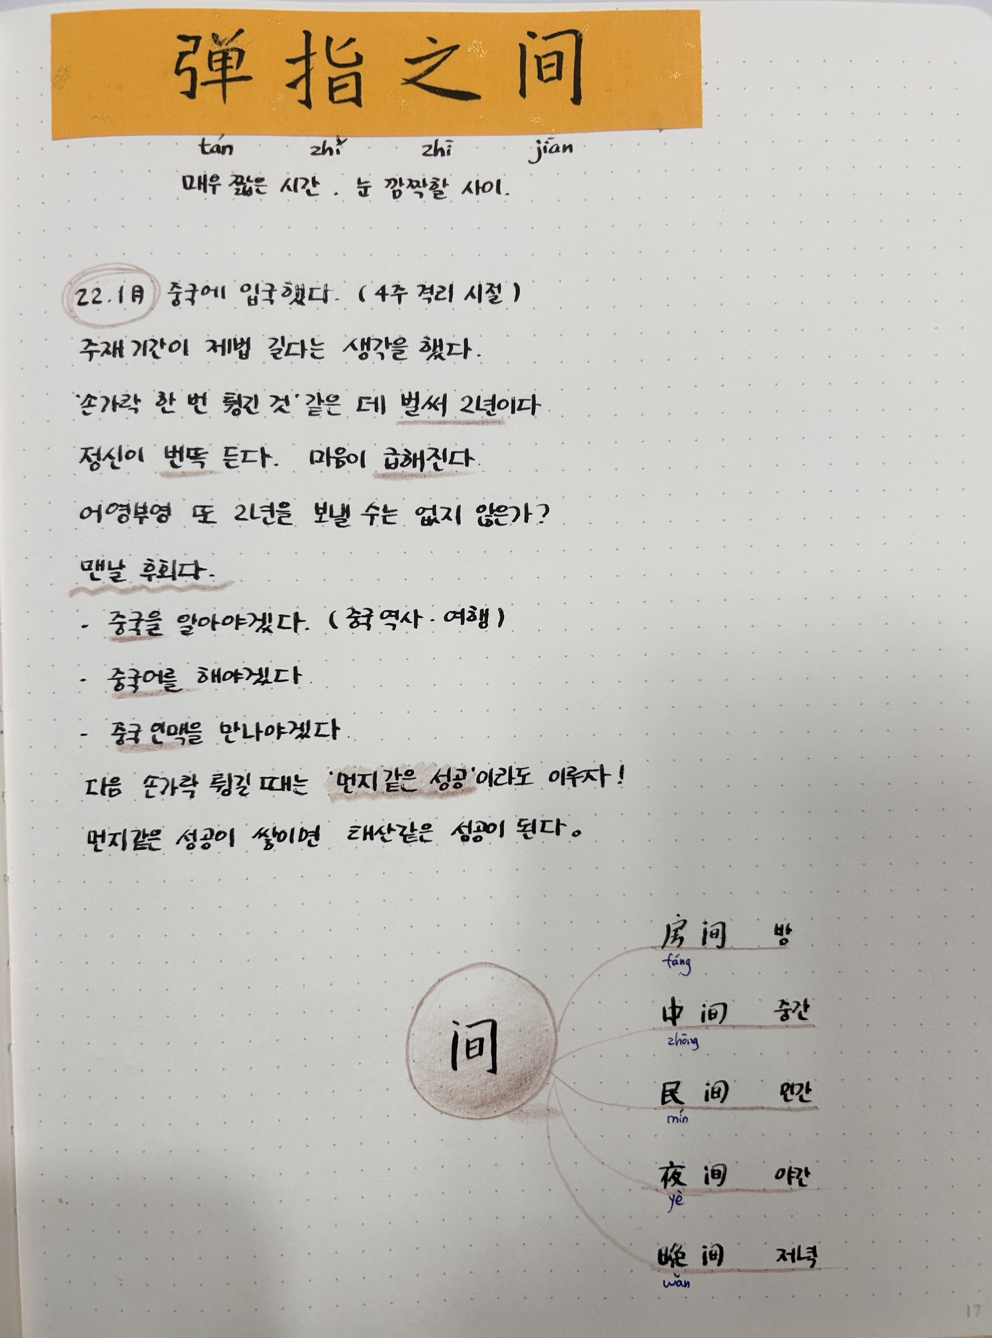 弹指之间
tán zhǐ zhī jiān
매우 짧은 시간. 눈 깜짝할 사이.
22.1月 중국에 입국했다. (4주 격리 시절)
주재기간이 제법 길다는 생각을 했다.
'손가락 한 번 튕긴 것' 같은 데 벌써 2년이다
정신이 번뜩 든다. 마음이 급해진다
어영부영 또 2년을 보낼 수는 없지 않은가?
맨날 후회다.
- 중국을 알아야겠다. (중국역사·여행)
- 중국어를 해야겠다
- 중국 인맥을 만나야겠다
다음 손가락 튕길 때는 '먼지같은 성공'이라도 이루자!
먼지같은 성공이 쌓이면 태산같은 성공이 된다。
间
房间 방
fáng
中间 중간
zhōng
民间 민간
mín
夜间 야간
yè
晚间 저녁
wǎn
17